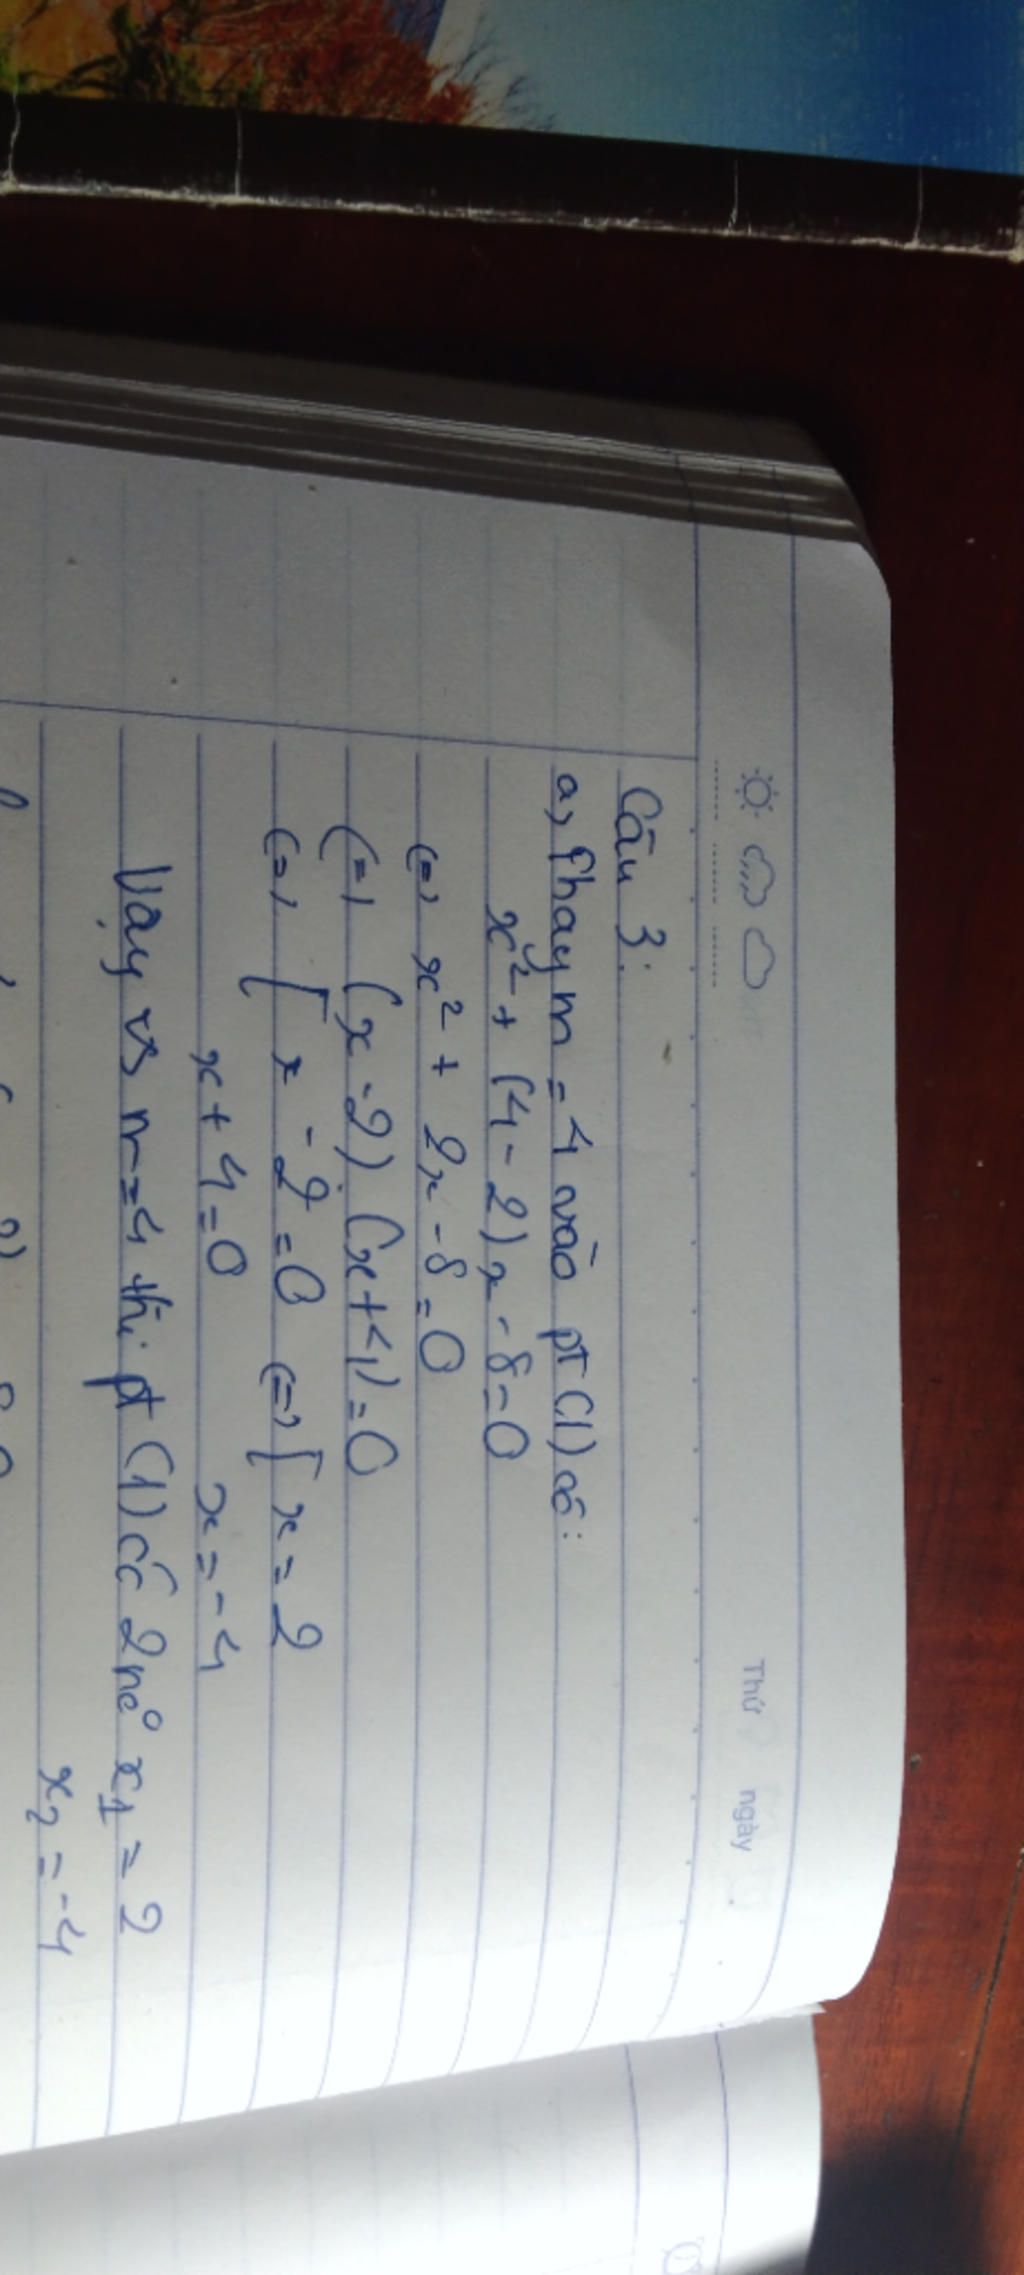 Thứ ngày
Câu 3:
a, Thay m = 4 vào pt (1) có:
x² + (4 - 2)x - 8 = 0
(=) x² + 2x - 8 = 0
(=) (x - 2) (x + 4) = 0
(=) [ x - 2 = 0 (=) [ x = 2
x + 4 = 0 x = -4
Vậy vs m = 4 thì pt (1) có 2 no x₁ = 2
x₂ = -4